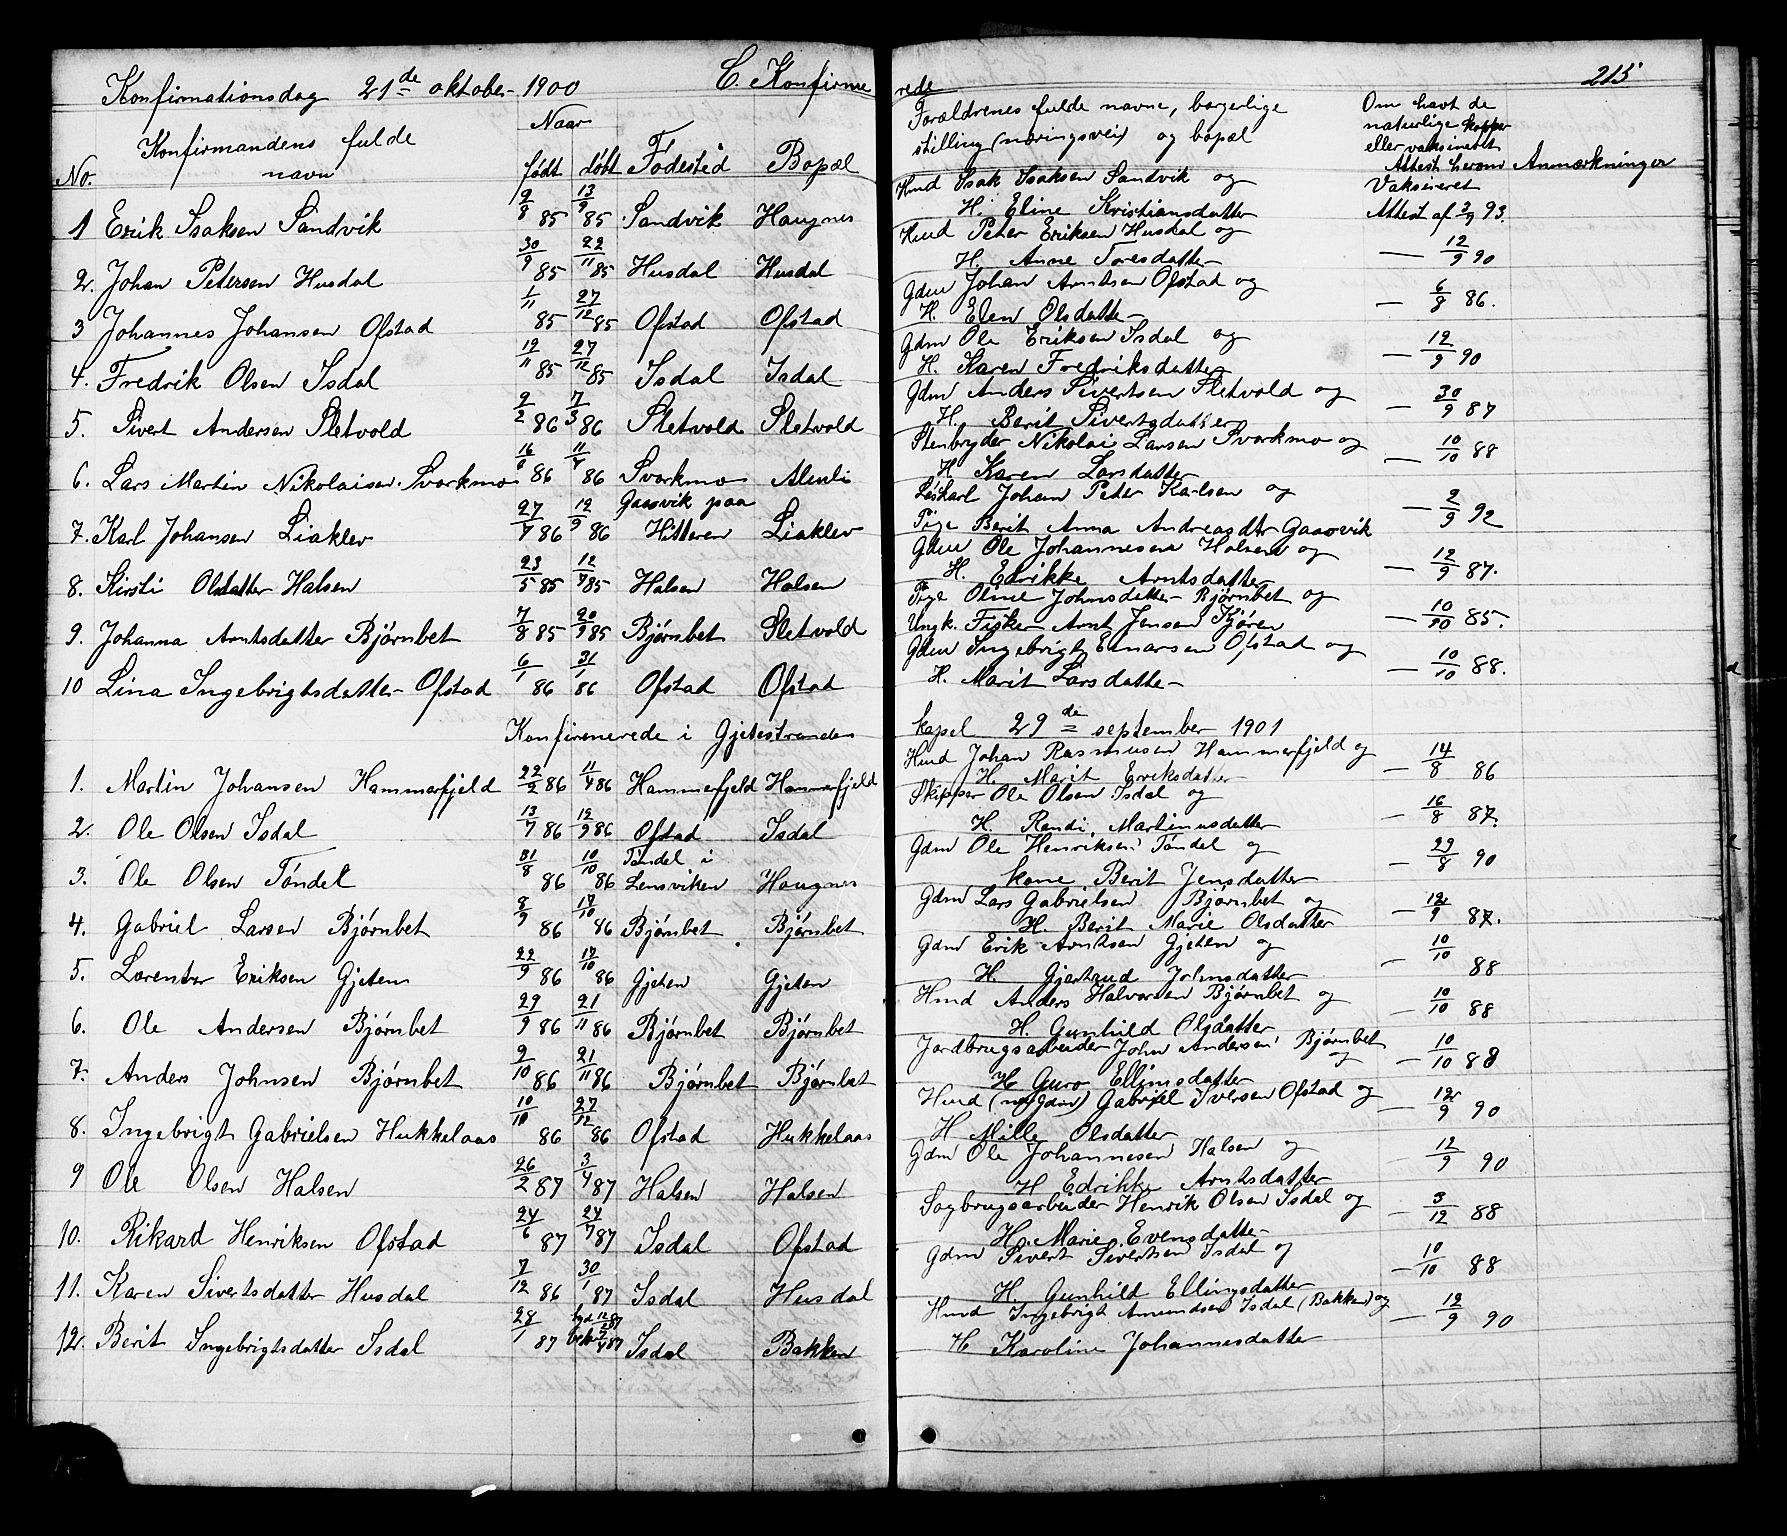 C. Konfirmerede 215
Konfirmationsdag 21de oktober 1900
No. Konfirmandens fulde navn Naar født døbt Fødested Bopæl Forældrenes fulde navne, borgerlige stilling (næringsvei) og bopæl Om havt de naturlige kopper eller vaksineret Attest herom Anmærkninger
1 Erik Isaksen Sandvik 9/8 85 13/9 85 Sandvik Haugnes Hmd Isak Isaksen Sandvik og Vaksineret
H. Eline Kristiansdatter Attest af 2/9 93.
2. Johan Petersen Husdal 30/9 85 22/11 85 Husdal Husdal Hmd Peter Eriksen Husdal og
H. Anne Toresdatter — 12/9 90
3 Johannes Johansen Ofstad 1/11 85 27/12 85 Ofstad Ofstad Gdm Johan Arntsen Ofstad og
H. Elen Olsdatter — 6/8 86.
4. Fredrik Olsen Isdal 19/11 85 27/12 85 Isdal Isdal Gdm Ole Eriksen Isdal og
H. Karen Fredriksdatter — 12/9 90
5. Sivert Andersen Sletvold 9/2 86 7/3 86 Sletvold Sletvold Gdm Anders Sivertsen Sletvold og
H. Berit Sivertsdatter — 30/9 87
6. Lars Martin Nikolaisen Svorkmo 86 11/4 86 Svorkmo Stenbryder Nikolai Larsen Svorkmo og
H. Karen Larsdatter — 10/10 88
7. Karl Johansen Liaklev 27/7 86 12/9 86 Gaasvik paa Hitteren Liaklev Løskarl Johan Peter Karlsen og
Pige Berit Anna Andreasdtr Gaasvik — 2/9 92
8. Kirsti Olsdatter Halsen 23/5 85 12/7 85 Halsen Halsen Gdm Ole Johannesen Halsen og
H. Edrikke Arntsdatter — 12/9 87.
9. Johanna Arntsdatter Bjørnbet 7/8 85 20/9 85 Bjørnbet Sletvold Pige Oline Johnsdatter Bjørnbet og
Ungk. Fisker Arnt Jensen Kjøren — 10/10 85.
10 Lina Ingebrigtsdatter Ofstad 6/1 86 31/1 86 Ofstad Ofstad Gdm Ingebrigt Einarsen Ofstad og
H. Marit Larsdatter — 10/10 88.
Konfirmerede i Gjetestranden kapel 29de september 1901
1. Martin Johansen Hammerfjeld 22/2 86 11/4 86 Hammerfjeld Hammerfjeld Hmd Johan Rasmusen Hammerfjeld og
H. Marit Eriksdatter — 14/8 86
2. Ole Olsen Isdal 13/7 86 12/9 86 Ofstad Isdal Skipper Ole Olsen Isdal og
H. Randi Martinusdatter — 16/8 87.
3. Ole Olsen Tøndel 31/8 86 10/10 86 Tøndel i Lensviken Haugnes Gdm Ole Henriksen Tøndel og
kone Berit Jensdatter — 29/8 90
4. Gabriel Larsen Bjørnbet 8/9 86 17/10 86 Bjørnbet Bjørnbet Gdm Lars Gabrielsen Bjørnbet og
H. Berit Marie Olsdatter — 12/9 87.
5. Lorents Eriksen Gjeten 22/9 86 17/10 86 Gjeten Gjeten Gdm Erik Arntsen Gjeten og
H. Gjertrud Johnsdatter — 10/10 88
6. Ole Andersen Bjørnbet 29/9 86 21/11 86 Bjørnbet Bjørnbet Hmd Anders Halvorsen Bjørnbet og
H. Gunhild Olsdatter 10/10 88
7. Anders Johnsen Bjørnbet 9/10 86 21/11 86 Bjørnbet Bjørnbet Jordbrugsarbeider John Andersen Bjørnbet og
H Guro Ellingsdatter — 10/10 88
8. Ingebrigt Gabrielsen Hukkelaas 10/10 86 27/12 86 Ofstad Hukkelaas Hmd (nu Gdm) Gabriel Iversen Ofstad og
H Mille Olsdatter — 12/9 90
9 Ole Olsen Halsen 26/2 87 3/4 87 Halsen Halsen Gdm Ole Johannesen Halsen og
H Edrikke Arntsdatter — 12/9 90
10. Rikard Henriksen Ofstad 24/6 87 24/7 87 Isdal Ofstad Sagbrugsarbeider Henrik Olsen Isdal og
H. Marie Evensdatter — 3/12 88
11. Karen Sivertsdatter Husdal 7/12 86 30/1 87 Isdal Husdal Gdm Sivert Sivertsen Isdal og
H. Gunhild Ellingsdatter — 10/10 88
12. Berit Ingebrigtsdatter Isdal 28/1 87 Isdal Bakken Hmd Ingebrigt Amundsen Isdal (Bakken) og
H Karoline Johannesdatter — 12/9 90